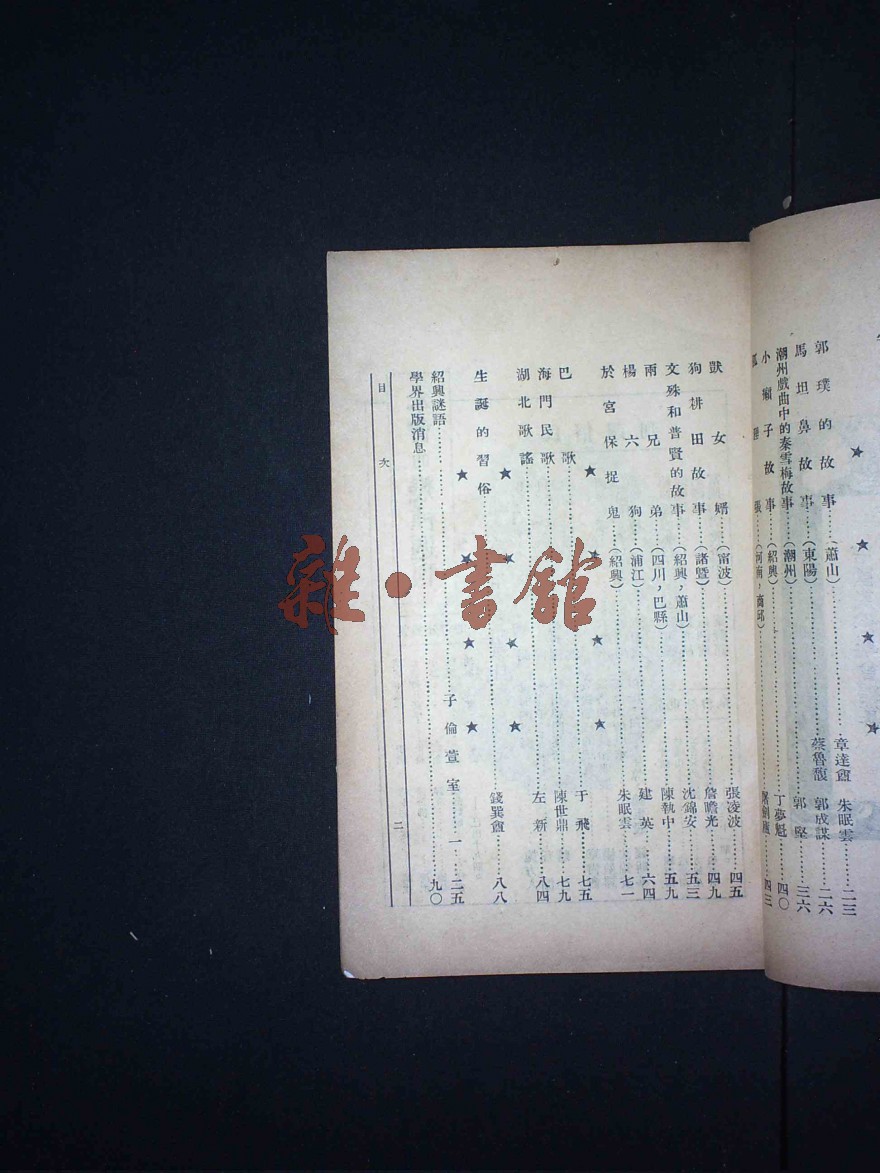 郭璞的故事（蕭山）……章達盦 朱眠雲……二三
馬坦鼻故事（東陽）……蔡魯馥 郭成謀……二六
潮州戲曲中的秦雪梅故事（潮州）……郭堅……三六
小癩子故事（紹興）……丁夢魁……四〇
張（河南，商邱）……四三
獃女婿（甯波）……張凌波……四五
狗耕田故事（諸暨）……詹瞻光……四九
文殊和普賢的故事（紹興，蕭山）……沈錦安……五三
兩兄弟（四川，巴縣）……陳執中……五九
楊六狗（浦江）……建英……六四
於宮保捉鬼（紹興）……朱眠雲……七一
★ ★ ★ ★
巴歌……于飛……七五
海門民歌……陳世鼎……七九
湖北歌謠……左新……八四
★ ★ ★ ★
生誕的習俗……錢巽盦……八八
★ ★ ★ ★
紹興謎語……子倫萱室……一二五
學界出版消息……九〇
目次 二
雜·書館